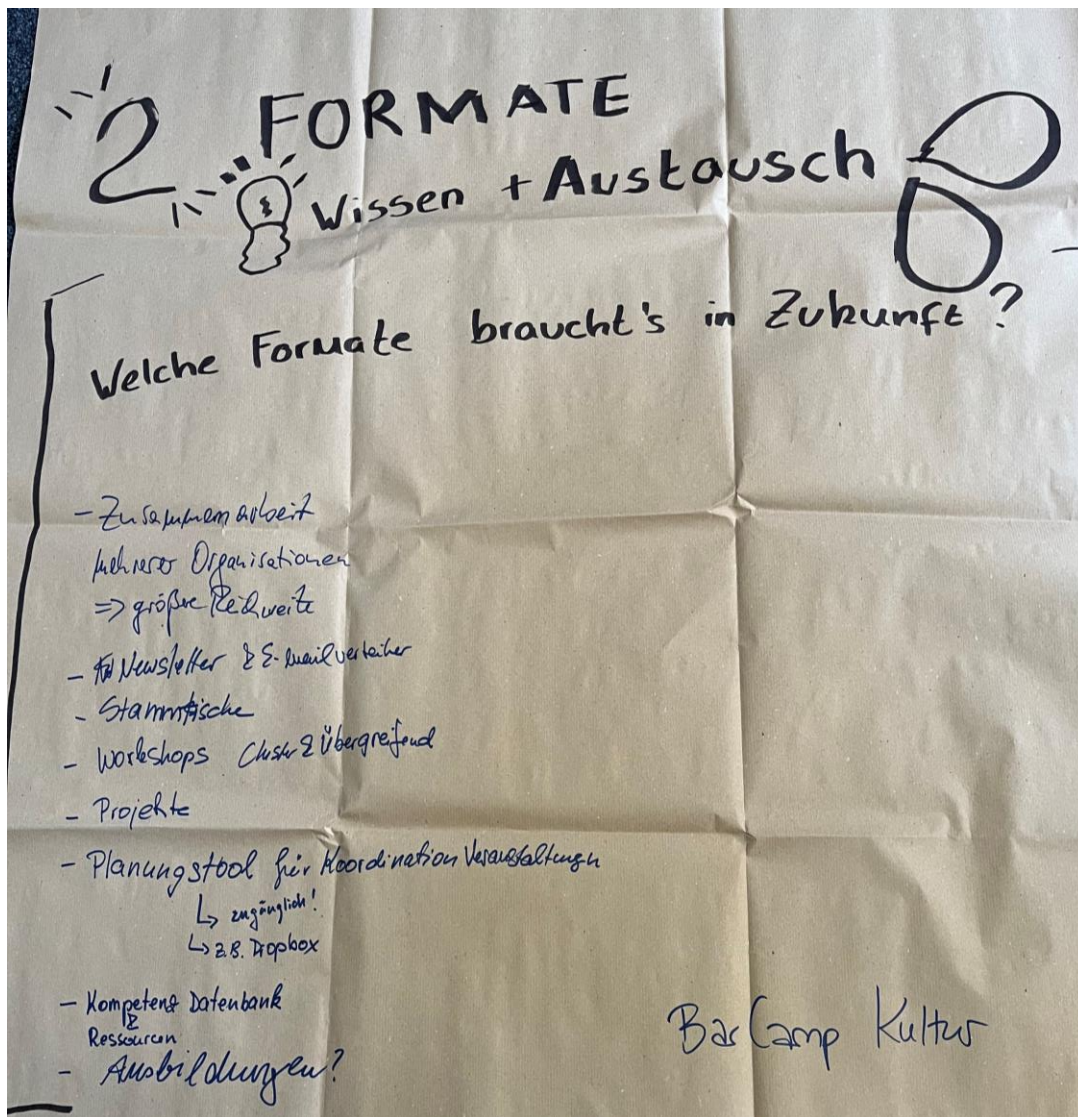 2 FORMATE
Wissen + Austausch
Welche Formate braucht's in Zukunft?
- Zusammenarbeit
mehrerer Organisationen
=> größere Reichweite
- Newsletter & E-mailverteiler
- Stammtische
- Workshops Cluster & Übergreifend
- Projekte
- Planungstool für Koordination Veranstaltungen
↳ zugänglich!
↳ z.B. Dropbox
- Kompetenz Datenbank
&
Ressourcen
- Ausbildungen?
BarCamp Kultur